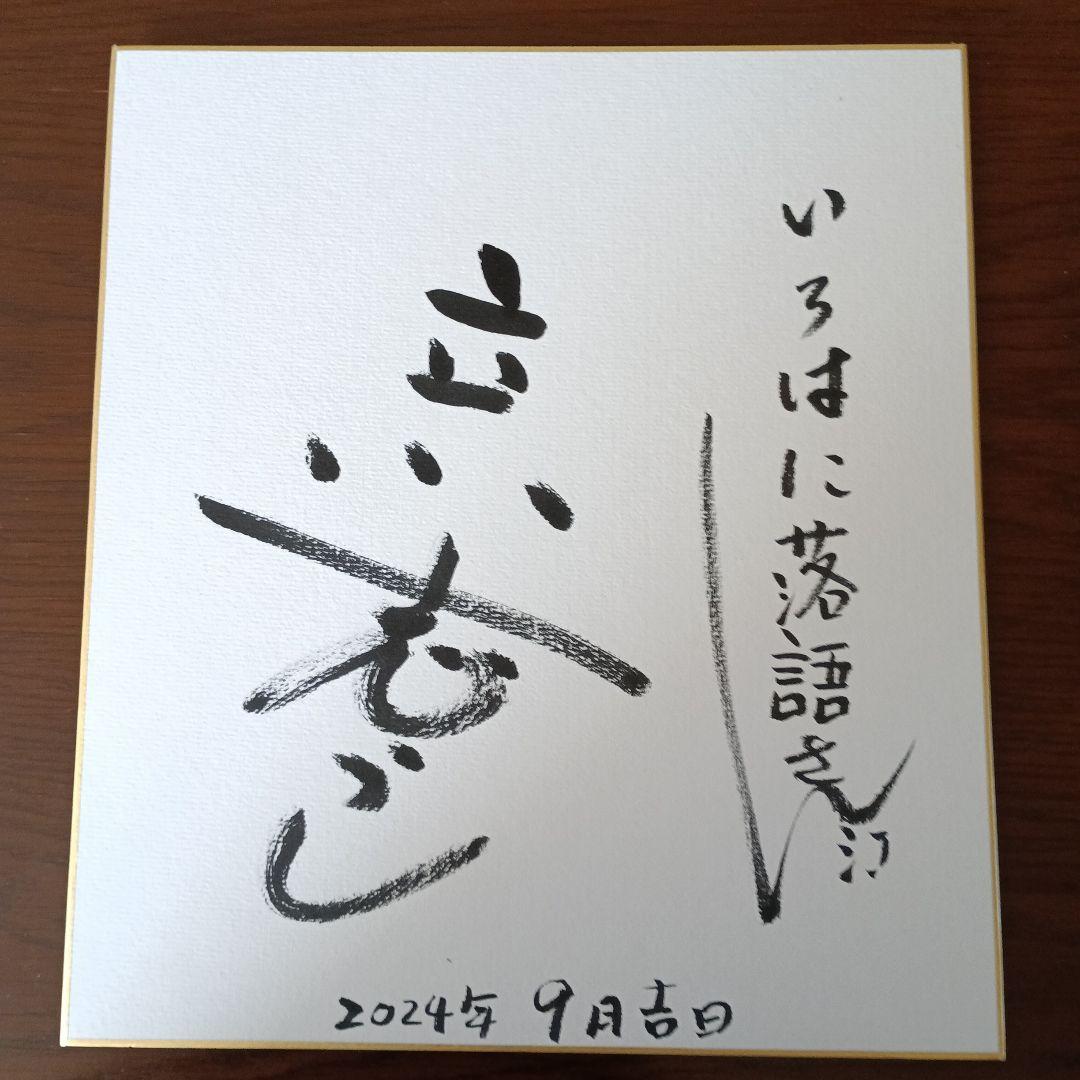 いろはに落語さん江
立川
2024年 9月吉日